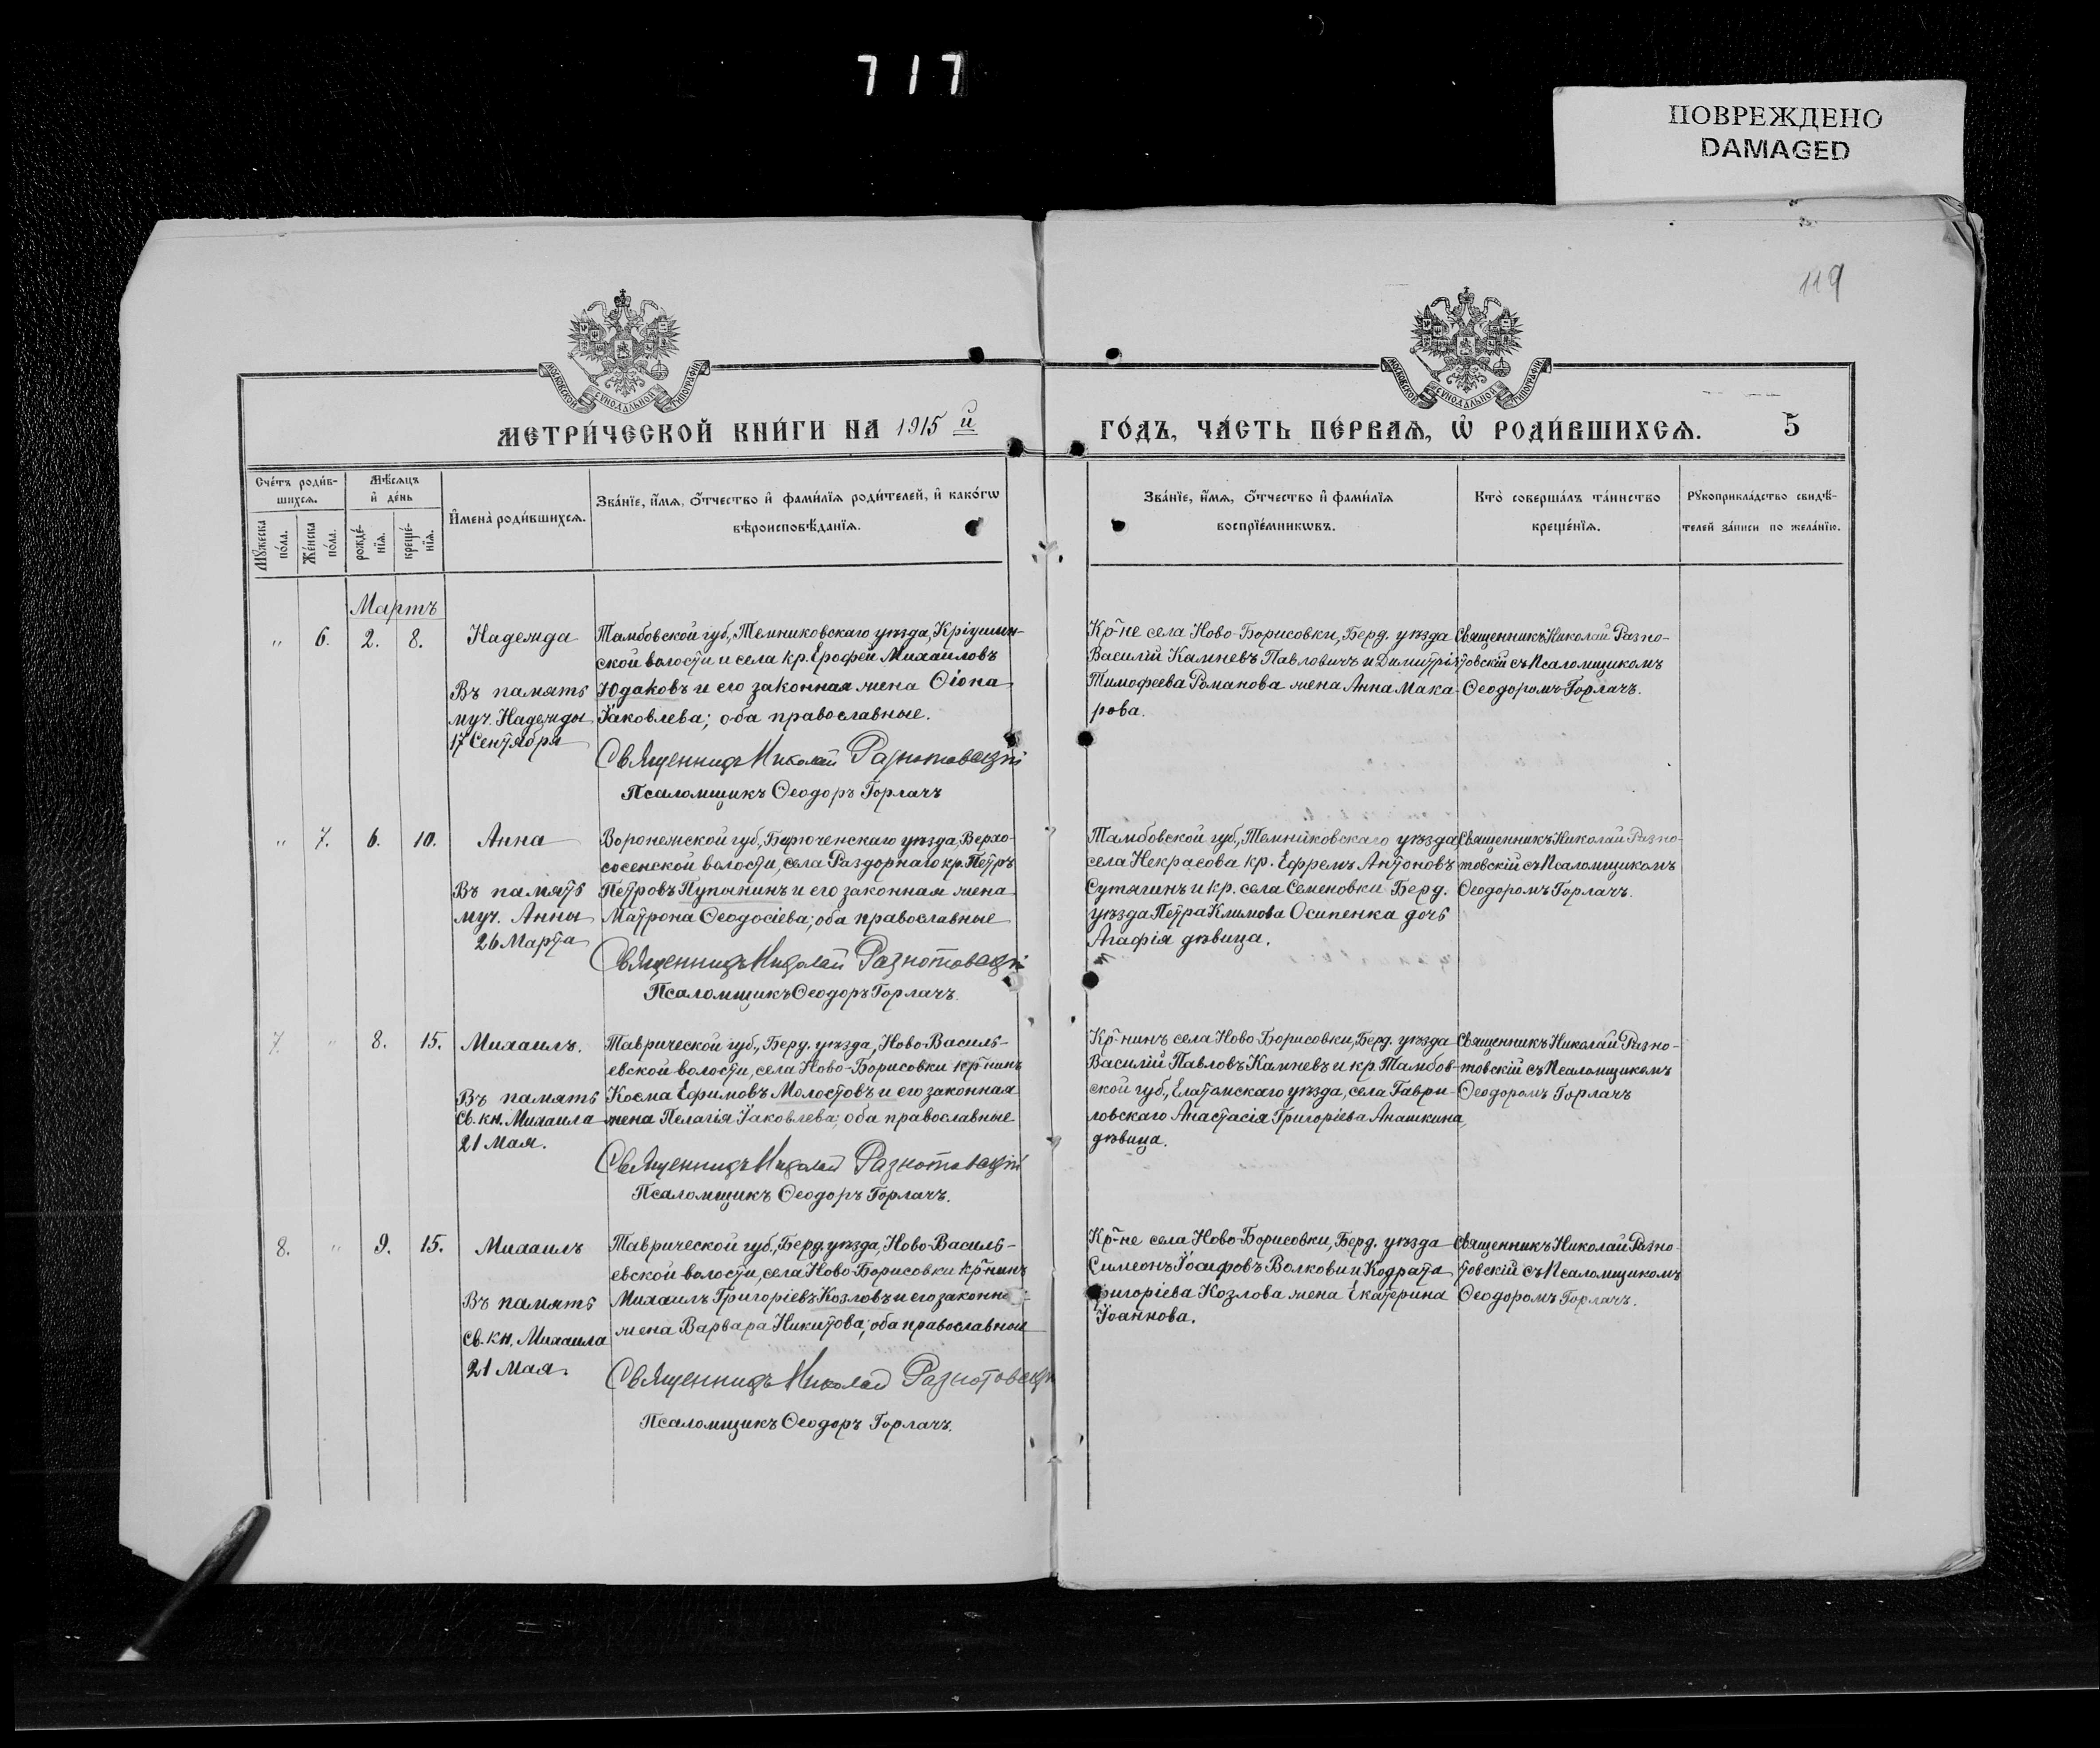 717
ПОВРЕЖДЕНО
DAMAGED
119
МОСКОВСКОЙ СУНОДАЛЬНОЙ ТИПОГРАФІИ
МОСКОВСКОЙ СУНОДАЛЬНОЙ ТИПОГРАФІИ
МЕТРИ́ЧЕСКОЙ КНИ́ГИ НА 1915 й
ГО́ДЪ, ЧА́СТЬ ПЕ́РВАѦ, Ѡ҆ РОДИ́ВШИХСѦ. 5
Сче́тъ роди́в-
шихсѧ.
Мꙋ́жеска
по́ла.
Же́нска
по́ла.
Мѣ́сѧцъ
и҆ де́нь
рожде́-
нїѧ.
креще́-
нїѧ.
И҆мена̀ роди́вшихсѧ.
Зва́нїе, и҆́мѧ, ѻ҆́тчество и҆ фами́лїѧ роди́телей, и҆ како́гѡ
вѣроисповѣ́данїѧ.
Зва́нїе, и҆́мѧ, ѻ҆́тчество и҆ фами́лїѧ
воспрїе́мникѡвъ.
Кто̀ соверша́лъ та́инство
креще́нїѧ.
Рꙋкоприкла́дство свидѣ́-
телей за́писи по жела́нїю.
Мартъ
" 6. 2. 8. Надежда
Въ память
муч. Надежды
17 Сентября
Тамбовской губ., Темниковскаго уѣзда, Кріушин-
ской волости и села кр. Ерофей Михаиловъ
Юдаковъ и его законная жена Ѳіона
Іаковлева; оба православные.
Священникъ Николай Разнотовскій
Псаломщикъ Ѳеодоръ Горлачъ
Кр-не села Ново-Борисовки, Берд. уѣзда
Василій Камневъ Павловичъ и Димитрія
Тимофеева Романова жена Анна Мака-
рова.
Священникъ Николай Разно-
товскій съ Псаломщикомъ
Ѳеодоромъ Горлачъ.
" 7. 6. 10. Анна
Въ память
муч. Анны
26 Марта
Воронежской губ., Бирюченскаго уѣзда, Верхо-
сосенской волости, села Раздорнаго кр. Петръ
Петровъ Пупынинъ и его законная жена
Матрона Ѳеодосіева; оба православные
Священникъ Николай Разнотовскій
Псаломщикъ Ѳеодоръ Горлачъ.
Тамбовской губ., Темниковскаго уѣзда,
села Некрасова кр. Ефремъ Антоновъ
Сутягинъ и кр. села Семеновки Берд.
уѣзда Петра Климова Осипенка дочь
Агафія дѣвица.
Священникъ Николай Разно-
товскій съ Псаломщикомъ
Ѳеодоромъ Горлачъ.
7. " 8. 15. Михаилъ.
Въ память
Св. кн. Михаила
21 Мая.
Таврической губ., Берд. уѣзда, Ново-Василь-
евской волости, села Ново-Борисовки кр-нинъ
Косма Ефимовъ Молостовъ и его законная
жена Пелагія Іаковлева; оба православные
Священникъ Николай Разнотовскій
Псаломщикъ Ѳеодоръ Горлачъ.
Кр-нинъ села Ново-Борисовки, Берд. уѣзда
Василій Павловъ Камневъ и кр. Тамбов-
ской губ., Елатомскаго уѣзда, села Гаври-
ловскаго Анастасія Григоріева Анашкина,
дѣвица.
Священникъ Николай Разно-
товскій съ Псаломщикомъ
Ѳеодоромъ Горлачъ
8. " 9. 15. Михаилъ
Въ память
Св. кн. Михаила
21 Мая.
Таврической губ., Берд. уѣзда, Ново-Василь-
евской волости, села Ново-Борисовки кр-нинъ
Михаилъ Григоріевъ Козловъ и его законн
жена Варвара Никитова; оба православные
Священникъ Николай Разнотовскій
Псаломщикъ Ѳеодоръ Горлачъ.
Кр-не села Ново-Борисовки, Берд. уѣзда
Симеонъ Іосифовъ Волковъ и Кодрата
Григоріева Козлова жена Екатерина
Іоаннова.
Священникъ Николай Разно-
товскій съ Псаломщикомъ
Ѳеодоромъ Горлачъ.